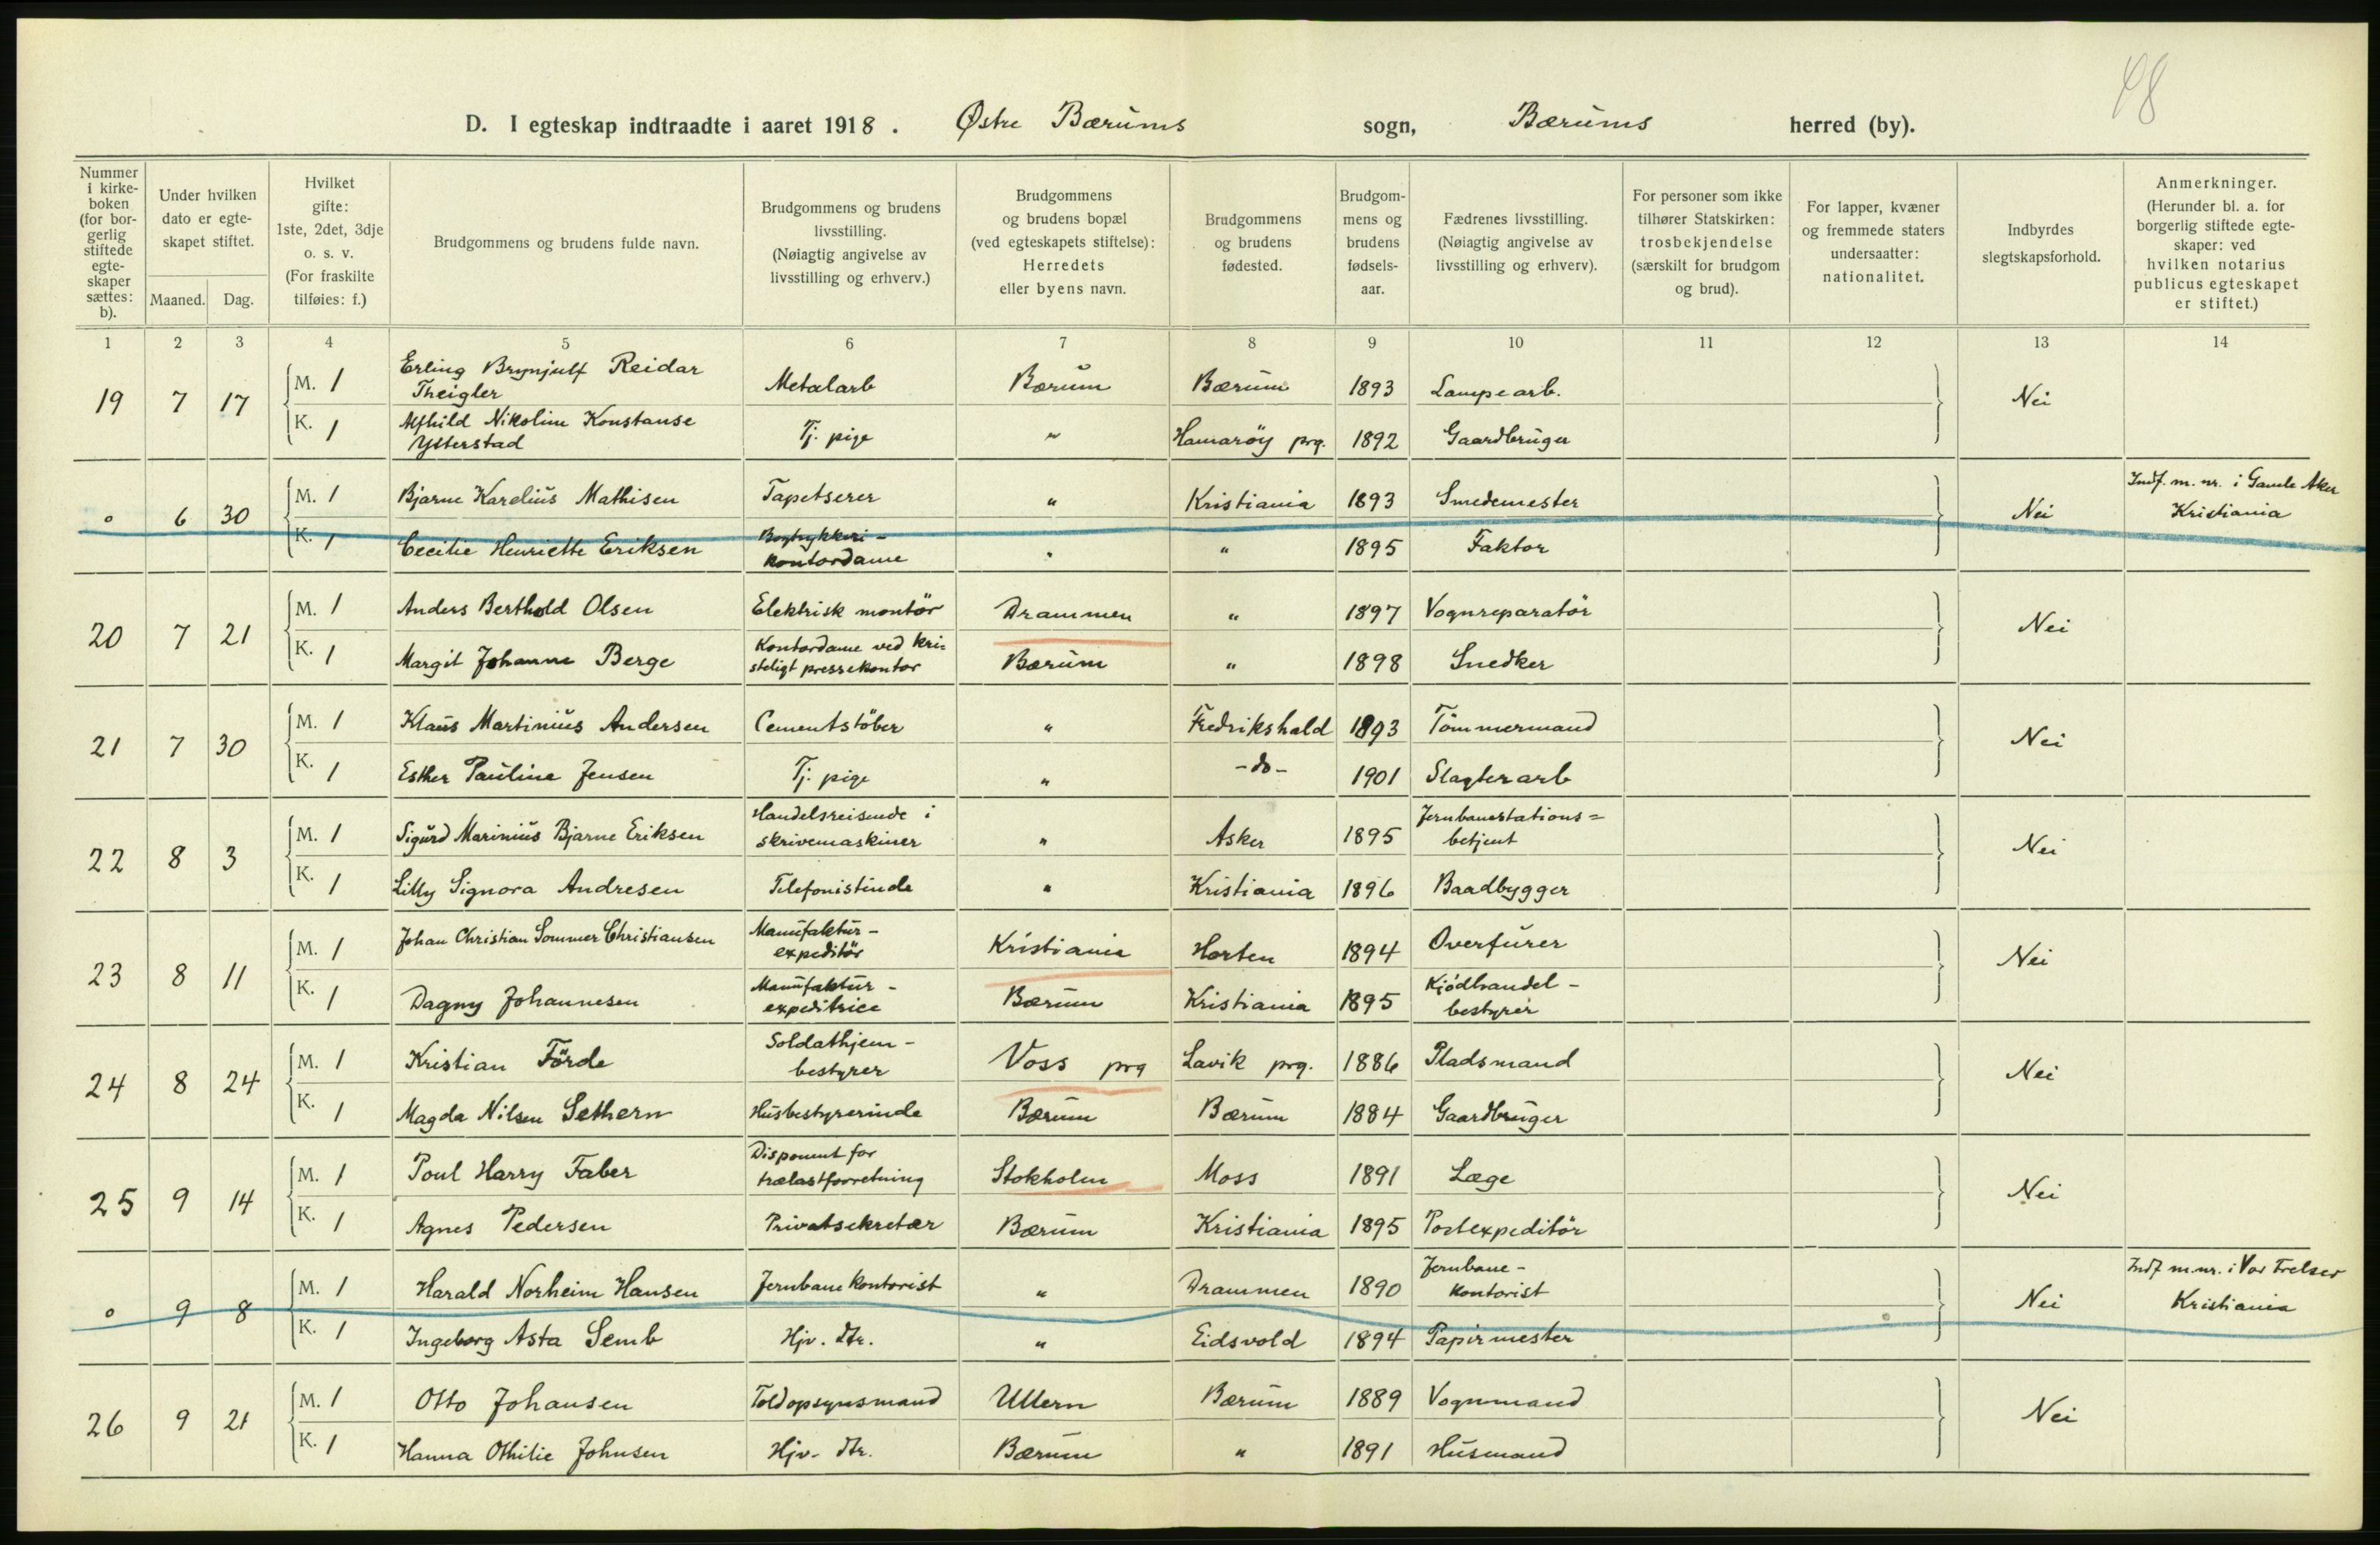 98
D. I egteskap indtraadte i aaret 1918. Østre Bærums sogn, Bærums herred (by).
Nummer i kirke-boken (for bor-gerlig stiftede egte-skaper sættes: b).
Under hvilken dato er egte-skapet stiftet.
Maaned. Dag.
Hvilket gifte: 1ste, 2det, 3dje o. s. v. (For fraskilte tilføies: f.)
Brudgommens og brudens fulde navn.
Brudgommens og brudens livsstilling. (Nøiagtig angivelse av livsstilling og erhverv.)
Brudgommens og brudens bopæl (ved egteskapets stiftelse): Herredets eller byens navn.
Brudgommens og brudens fødested.
Brudgom-mens og brudens fødsels-aar.
Fædrenes livsstilling. (Nøiagtig angivelse av livsstilling og erhverv).
For personer som ikke tilhører Statskirken: trosbekjendelse (særskilt for brudgom og brud).
For lapper, kvæner og fremmede staters undersaatter: nationalitet.
Indbyrdes slegtskapsforhold.
Anmerkninger. (Herunder bl. a. for borgerlig stiftede egte-skaper: ved hvilken notarius publicus egteskapet er stiftet.)
1 2 3 4 5 6 7 8 9 10 11 12 13 14
19 7 17 M. 1 Erling Brynjulf Reidar Theigler Metalarb Bærum Bærum 1893 Lampearb. Nei
K. 1 Alfhild Nikoline Konstanse Ytterstad Tj. pige " Hamaröy prg. 1892 Gaardbruger
o 6 30 M. 1 Bjarne Karelius Mathisen Tapetserer " Kristiania 1893 Smedemester Nei Indf. m. nr. i Gamle Aker Kristiania
K. 1 Cecilie Henriette Eriksen Bogtrykkeri-kontordame " " 1895 Faktor
20 7 21 M. 1 Anders Berthold Olsen Elektrisk montör Drammen " 1897 Vognreparatör Nei
K. 1 Margit Johanne Berge Kontordame ved kri=steligt pressekontor Bærum " 1898 Snedker
21 7 30 M. 1 Klaus Martinius Andersen Cementstöber " Fredrikshald 1893 Tömmermand Nei
K. 1 Esther Pauline Jensen Tj. pige " -do- 1901 Slagterarb
22 8 3 M. 1 Sigurd Marinius Bjarne Eriksen Handelsreisende i skrivemaskiner " Asker 1895 Jernbanestations=betjent Nei
K. 1 Lilly Signora Andresen Telefonistinde " Kristiania 1896 Baadbygger
23 8 11 M. 1 Johan Christian Sommer Christiansen Manufaktur-expeditör Kristiania Horten 1894 Overfurer Nei
K. 1 Dagny Johannesen Manufaktur-expeditrice Bærum Kristiania 1895 Kjödhandel-bestyrer
24 8 24 M. 1 Kristian Förde Soldathjem-bestyrer Voss prg Lavik prg. 1886 Pladsmand Nei
K. 1 Magda Nilsen Sethern Husbestyrerinde Bærum Bærum 1884 Gaardbruger
25 9 14 M. 1 Poul Harry Faber Disponent for trælastforretning Stokholm Moss 1891 Læge Nei
K. 1 Agnes Pedersen Privatsekretær Bærum Kristiania 1895 Postexpeditör
o 9 8 M. 1 Harald Norheim Hansen Jernbanekontorist " Drammen 1890 Jernbane-kontorist Nei Indf m. nr. i Vor Frelser Kristiania
K. 1 Ingeborg Asta Semb Hjv. dtr. " Eidsvold 1894 Papirmester
26 9 21 M. 1 Otto Johansen Toldopsynsmand Ullern Bærum 1889 Vognmand Nei
K. 1 Hanna Othilie Johnsen Hjv. dtr. Bærum " 1891 Husmand